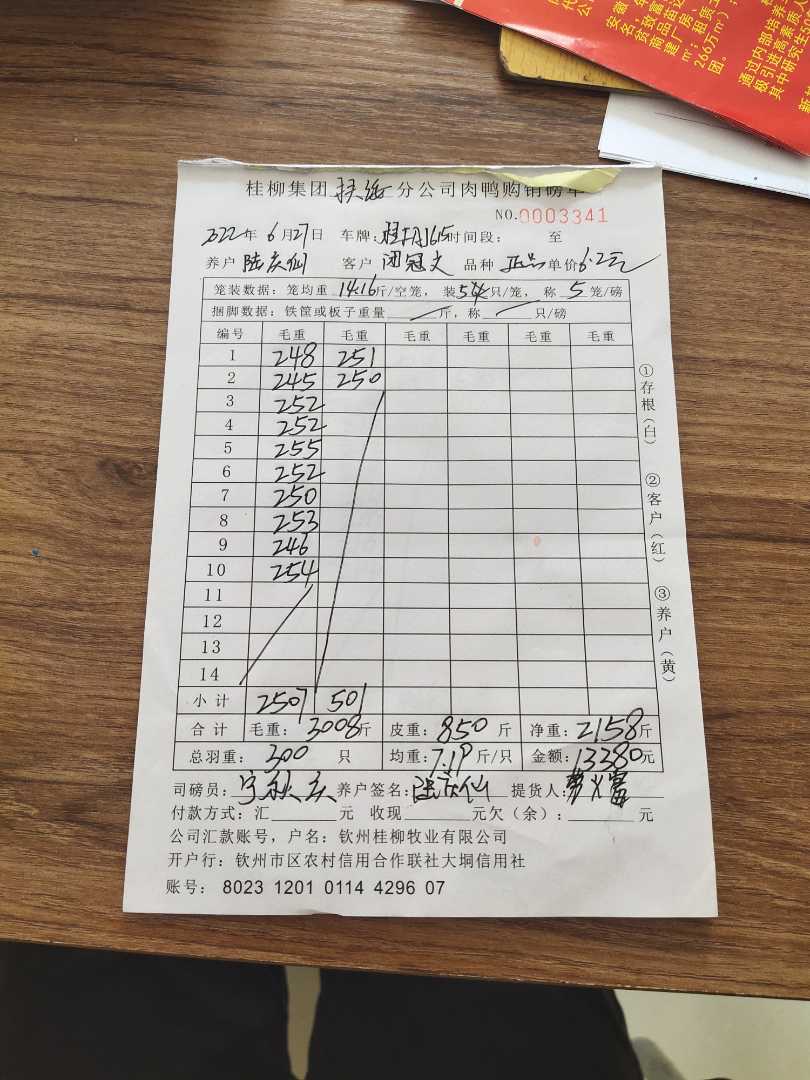 安徽
名,致富
贫品苗
商房、
建厂租赁
㎡;
266万㎡);
团。
通过内部培养
极引进高素质人
其中研究生5
桂柳集团 扶绥 分公司肉鸭购销磅单
NO.0003341
2022年 6月27日 车牌: 时间段: 至
养户 陆庆仙 客户 闭冠文 品种 正品 单价 6.2元
笼装数据: 笼均重 14.16 斤/空笼, 装 5 只/笼, 称 5 笼/磅
捆脚数据: 铁筐或板子重量 斤, 称 只/磅
编号 毛重 毛重 毛重 毛重 毛重 毛重
1 248 251
2 245 250
3 252
4 252
5 255
6 252
7 250
8 253
9 246
10 254
11
12
13
14
小计 2507 501
合计 毛重: 3008斤 皮重: 850 斤 净重: 2158斤
总羽重: 300 只 均重: 7.19 斤/只 金额: 13380元
司磅员: 养户签名: 陆庆仙 提货人:
付款方式: 汇 元 收现 元欠(余): 元
公司汇款账号, 户名: 钦州桂柳牧业有限公司
开户行: 钦州市区农村信用合作联社大垌信用社
账号: 8023 1201 0114 4296 07
①存根(白)
②客户(红)
③养户(黄)